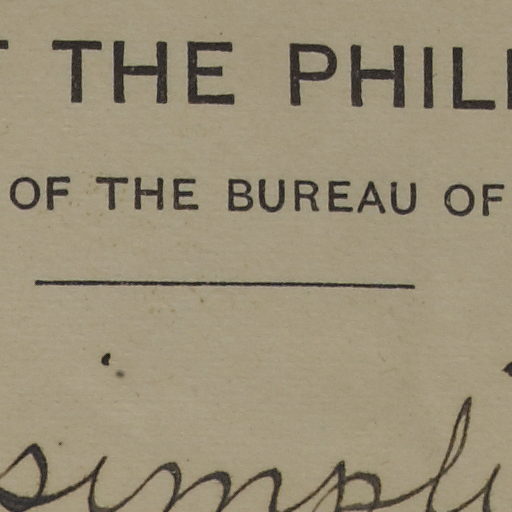 T THE PHIL
OF THE BUREAU OF
simpli